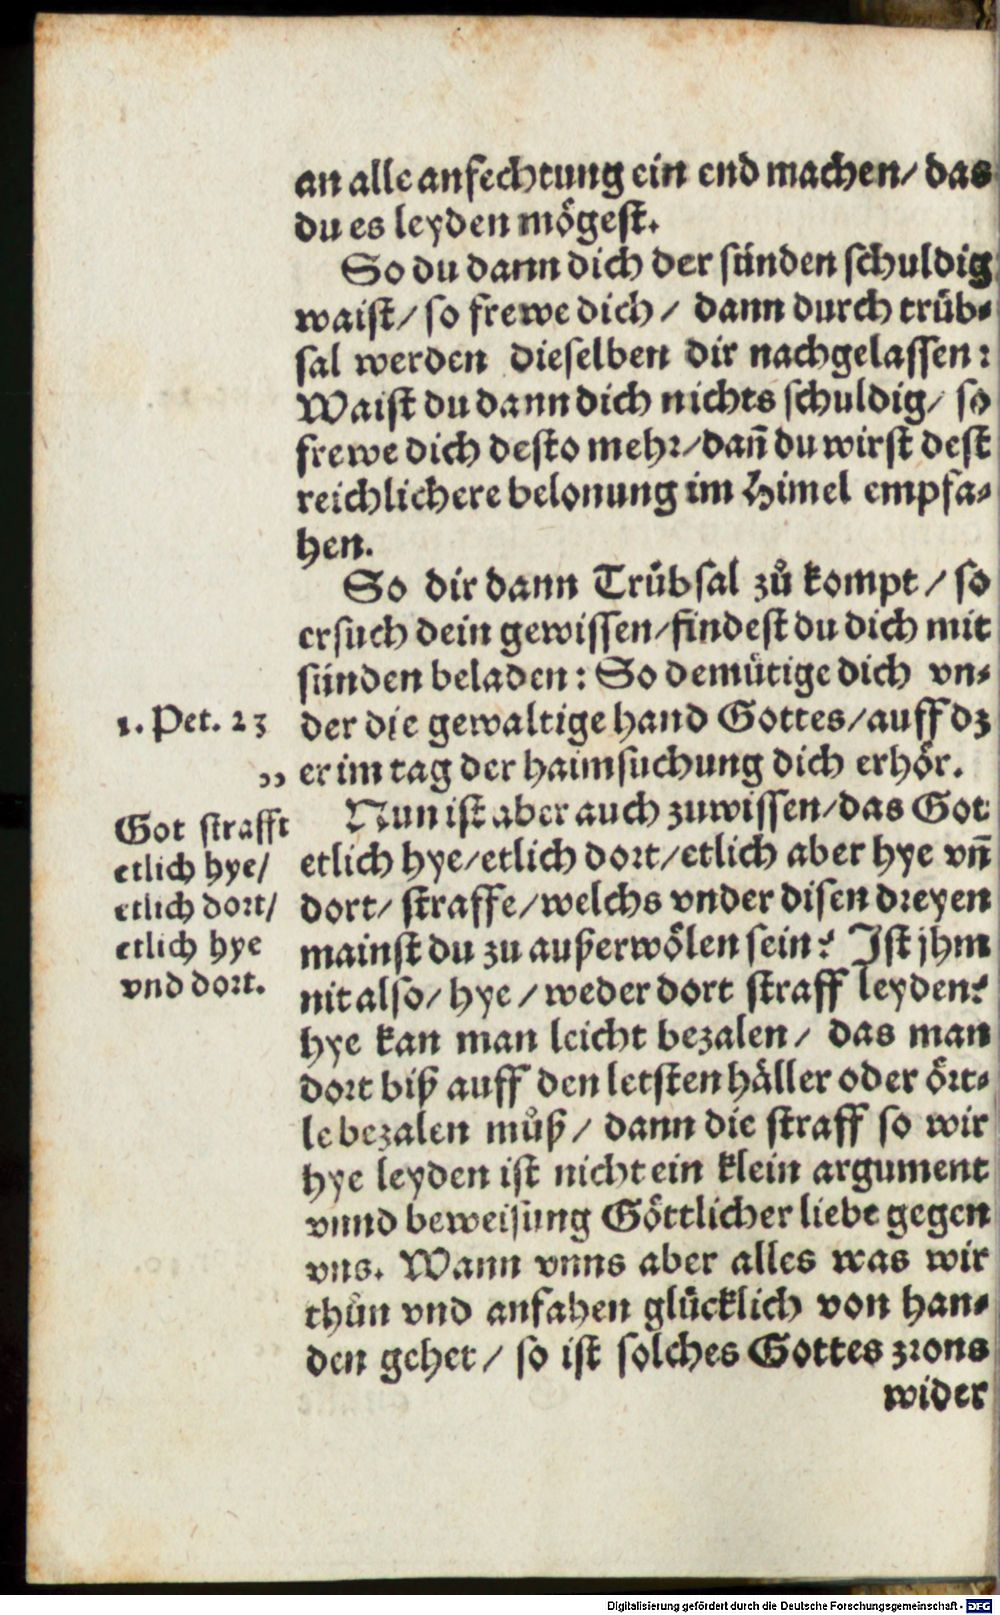 an alle anfechtung ein end machen/ das
du es leyden mögest.
So du dann dich der sünden schuldig
waist/ so frewe dich/ dann durch trüb⸗
sal werden dieselben dir nachgelassen:
Waist du dann dich nichts schuldig/ so
frewe dich desto mehr/ dañ du wirst dest
reichlichere belonung im Himel empfa⸗
hen.
So dir dann Trübsal zů kompt/ so
ersuch dein gewissen/ findest du dich mit
sünden beladen: So demütige dich vn⸗
1. Pet. 23
der die gewaltige hand Gottes/ auff dz
„ er im tag der haimsuchung dich erhör.
Nun ist aber auch zuwissen/ das Got
Got strafft
etlich hye/
etlich dort/
etlich hye
vnd dort.
etlich hye/ etlich dort/ etlich aber hye vñ
dort/ straffe/ welchs vnder disen dreyen
mainst du zu außerwölen sein? Ist jhm
nit also/ hye/ weder dort straff leyden?
hye kan man leicht bezalen/ das man
dort biß auff den letsten häller oder ört⸗
le bezalen můß/ dann die straff so wir
hye leyden ist nicht ein klein argument
vnnd beweisung Göttlicher liebe gegen
vns. Wann vnns aber alles was wir
thůn vnd anfahen glücklich von han⸗
den gehet/ so ist solches Gottes zrons
wider
Digitalisierung gefördert durch die Deutsche Forschungsgemeinschaft - DFG